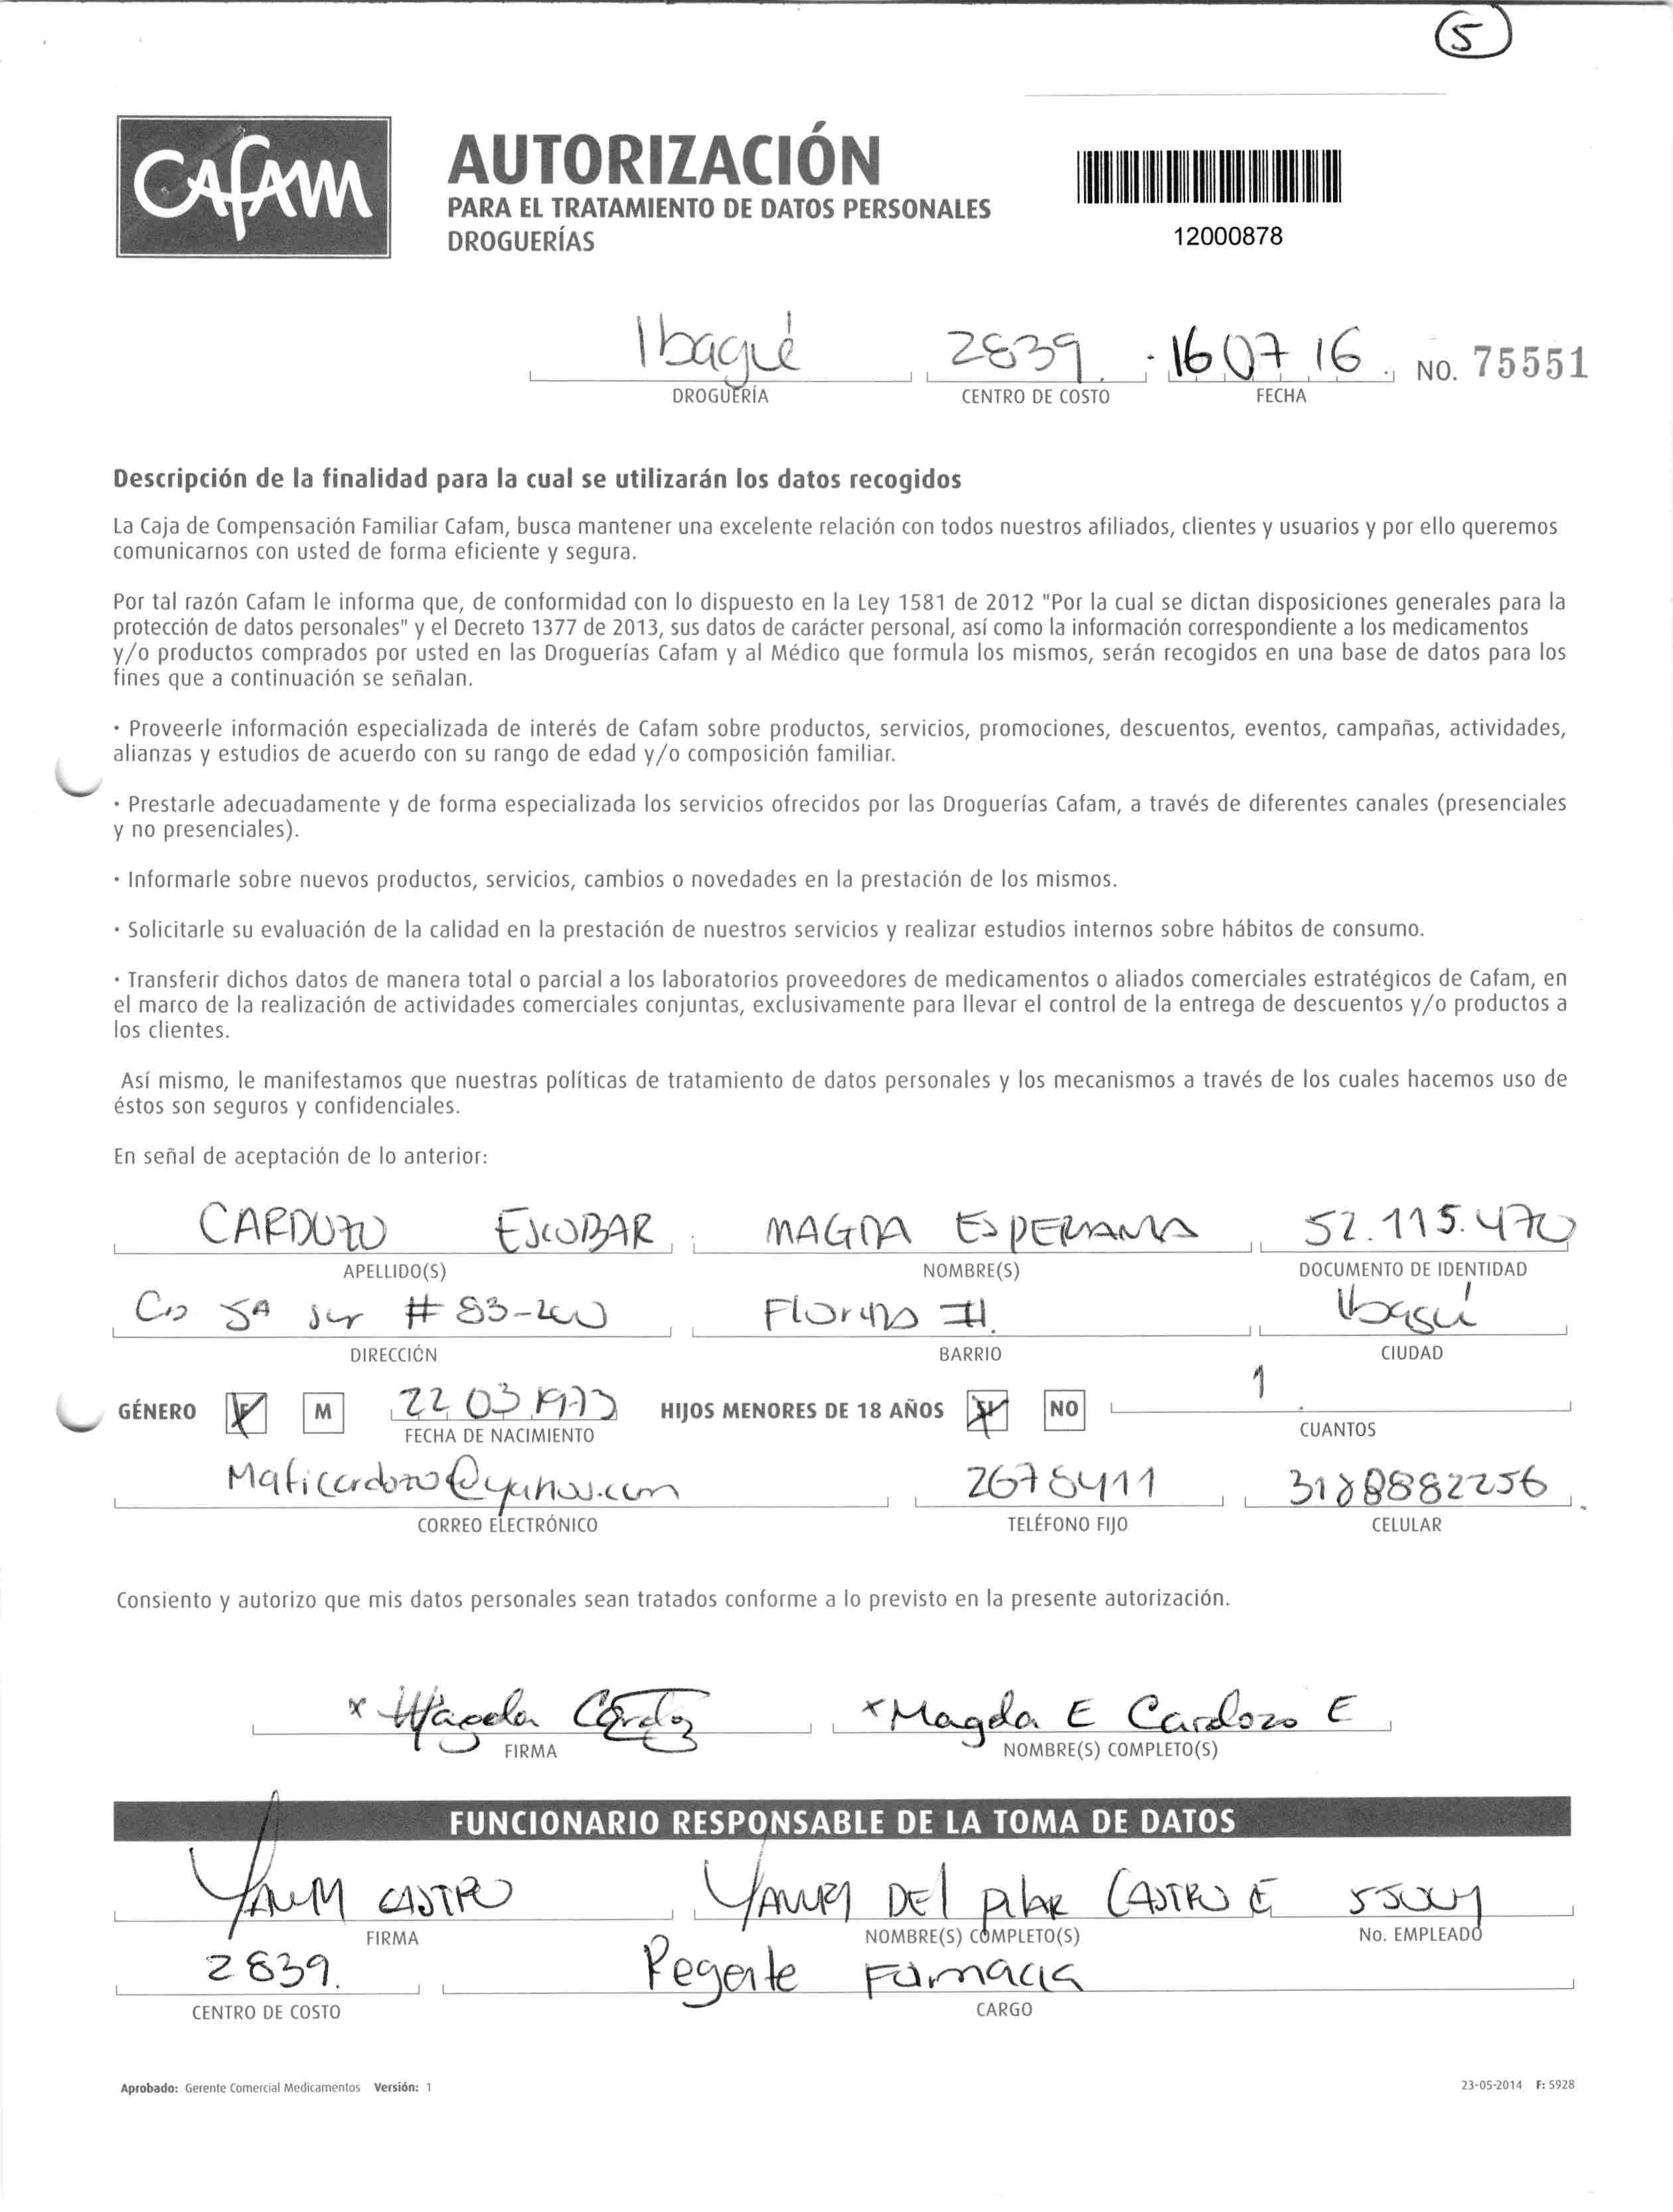 5
CAFAM
AUTORIZACIÓN
PARA EL TRATAMIENTO DE DATOS PERSONALES
DROGUERÍAS
12000878
Ibagué 2839 16 07 16 NO. 75551
DROGUERÍA CENTRO DE COSTO FECHA
Descripción de la finalidad para la cual se utilizarán los datos recogidos
La Caja de Compensación Familiar Cafam, busca mantener una excelente relación con todos nuestros afiliados, clientes y usuarios y por ello queremos
comunicarnos con usted de forma eficiente y segura.
Por tal razón Cafam le informa que, de conformidad con lo dispuesto en la Ley 1581 de 2012 "Por la cual se dictan disposiciones generales para la
protección de datos personales" y el Decreto 1377 de 2013, sus datos de carácter personal, así como la información correspondiente a los medicamentos
y/o productos comprados por usted en las Droguerías Cafam y al Médico que formula los mismos, serán recogidos en una base de datos para los
fines que a continuación se señalan.
• Proveerle información especializada de interés de Cafam sobre productos, servicios, promociones, descuentos, eventos, campañas, actividades,
alianzas y estudios de acuerdo con su rango de edad y/o composición familiar.
• Prestarle adecuadamente y de forma especializada los servicios ofrecidos por las Droguerías Cafam, a través de diferentes canales (presenciales
y no presenciales).
• Informarle sobre nuevos productos, servicios, cambios o novedades en la prestación de los mismos.
• Solicitarle su evaluación de la calidad en la prestación de nuestros servicios y realizar estudios internos sobre hábitos de consumo.
• Transferir dichos datos de manera total o parcial a los laboratorios proveedores de medicamentos o aliados comerciales estratégicos de Cafam, en
el marco de la realización de actividades comerciales conjuntas, exclusivamente para llevar el control de la entrega de descuentos y/o productos a
los clientes.
Así mismo, le manifestamos que nuestras políticas de tratamiento de datos personales y los mecanismos a través de los cuales hacemos uso de
éstos son seguros y confidenciales.
En señal de aceptación de lo anterior:
CARDOZO ESCOBAR MAGDA ESPERANZA 52.115.470
APELLIDO(S) NOMBRE(S) DOCUMENTO DE IDENTIDAD
5A sur # 83-200 Ibagué
DIRECCIÓN BARRIO CIUDAD
GÉNERO F M 22 03 1973 HIJOS MENORES DE 18 AÑOS SI NO 1
FECHA DE NACIMIENTO CUANTOS
Maticardozo@yahoo.com 2678411 3188882256
CORREO ELECTRÓNICO TELÉFONO FIJO CELULAR
Consiento y autorizo que mis datos personales sean tratados conforme a lo previsto en la presente autorización.
x Magda Cardozo x Magda E Cardozo E
FIRMA NOMBRE(S) COMPLETO(S)
FUNCIONARIO RESPONSABLE DE LA TOMA DE DATOS
CASTRO DEL PILAR CASTRO E
FIRMA NOMBRE(S) COMPLETO(S) No. EMPLEADO
2839. Regente Farmacia
CENTRO DE COSTO CARGO
Aprobado: Gerente Comercial Medicamentos Versión: 1 23-05-2014 F: 5928